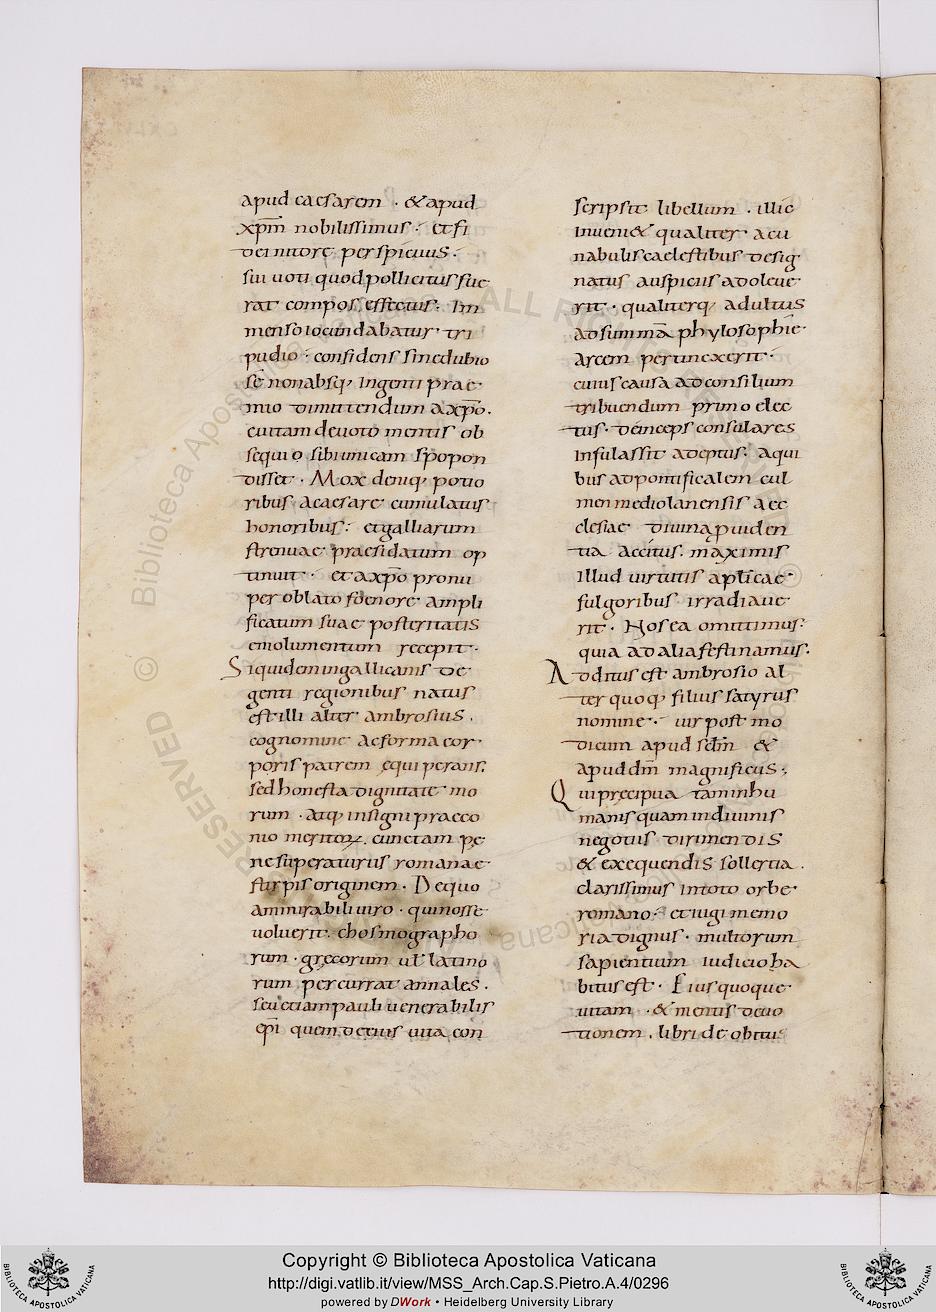 apud caesarem · & apud
xp̄m nobilissimus · et fi
dei nitore perspicuus ·
sui uoti quod pollicitus fue
rat compos effectus · Im
menso iocundabatur tri
pudio · confidens sine dubio
se non absq; ingenti prae
mio dimittendum a xp̄o .
cui tam deuotę mentis ob
sequio sibi unicam spopon
disset · Mox deniq; potio
ribus a caesare cumulatus
honoribus · et galliarum
strenuae praesidatum op
tinuit · et a xp̄o pronu
per oblato foenore ampli
ficatum suae posteritatis
emolumentum recepit ·
Siquidem in gallicanis de
genti regionibus natus
est illi alter ambrosius .
cognomine ac forma cor
poris patrem equiperans .
sed honesta dignitate mo
rum · atq; insigni praeco
nio meritoꝝ . cunctam pe
ne superaturus romanae
stirpis originem · De quo
ammirabili uiro · qui nosse
uoluerit . chosmographo
rum · grecorum ul̄ latino
rum percurrat annales .
seu etiam pauli uenerabilis
ep̄i quem de eius uita con
scripsit libellum · illic
inueni& qualiter a cu
nabulis caelestibus desig
natus auspiciis adoleue
rit · qualiterq; adultus
ad summā phylosophie
arcem perunexerit ·
cuius causa ad consilium
tribuendum primo elec
tus · deinceps consulares
infulas sit adeptus · a qui
bus ad pontificalem cul
men mediolanensis aec
clesiae diuina ꝓuiden
tia accitus . maximis
illud uirtutis apl̄icae
fulgoribus irradiaue
rit · Nos ea omittimus ·
quia ad alia festinamus .
Additus est ambrosio al
ter quoq; filius satyrus
nomine · uir post mo
dicum apud sc̄lm &
apud dm̄ magnificus ;
Qui precipua tam in hu
manis quam in diuinis
negotiis dirimendis
& exequendis sollertia .
clarissimus in toto orbe
romano · et iugi memo
ria dignus · multorum
sapientium iudicio ha
bitus est · Eius quoque
uitam · & mentis deuo
tionem . libri de obitus